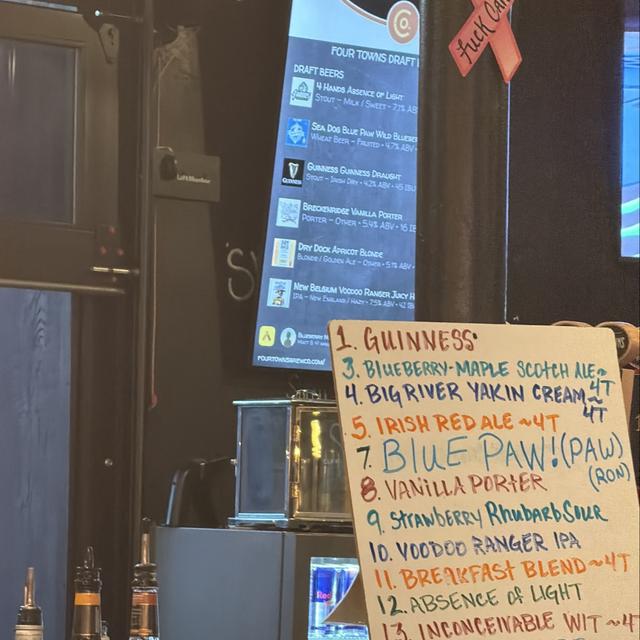 Fuck Can
FOUR TOWNS DRAFT
DRAFT BEERS
4 HANDS ABSENCE OF LIGHT
STOUT - MILK / SWEET • 7.1% AB
SEA DOG BLUE PAW WILD BLUEBER
WHEAT BEER - FRUITED • 4.7% ABV
GUINNESS
GUINNESS GUINNESS DRAUGHT
STOUT - IRISH DRY • 4.2% ABV • 45 IBU
BRECKENRIDGE VANILLA PORTER
PORTER - OTHER • 5.4% ABV • 16 IB
DRY DOCK APRICOT BLONDE
BLONDE / GOLDEN ALE - OTHER • 5.1% ABV
NEW BELGIUM VOODOO RANGER JUICY H
IPA - NEW ENGLAND / HAZY • 7.5% ABV • 42 IB
BLUEBERRY M
FOURTOWNSBREWCO.COM/
LiftMaster
1. GUINNESS
3. BLUEBERRY-MAPLE SCOTCH ALE ~4T
4. BIG RIVER YAKIN CREAM ~4T
5. IRISH RED ALE ~4T
7. BLUE PAW! (PAW) (RON)
8. VANILLA PORTER
9. Strawberry Rhubarb Sour
10. VOODOO RANGER IPA
11. BREAKFAST BLEND ~4T
12. ABSENCE of LIGHT
13. INCONCEIVABLE WIT ~4
Red